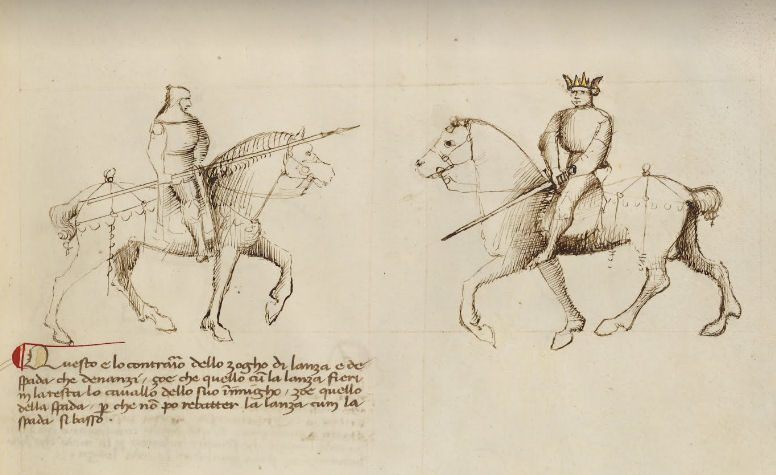 Questo e lo contrario dello zogho di lanza e de
spada che denanzi, zoe che quello cū la lanza fieri
in la testa lo cavallo dello suo īnimigho, zoe quello
della spada, ꝑ che nō po rebatter la lanza cum la
spada si basso.